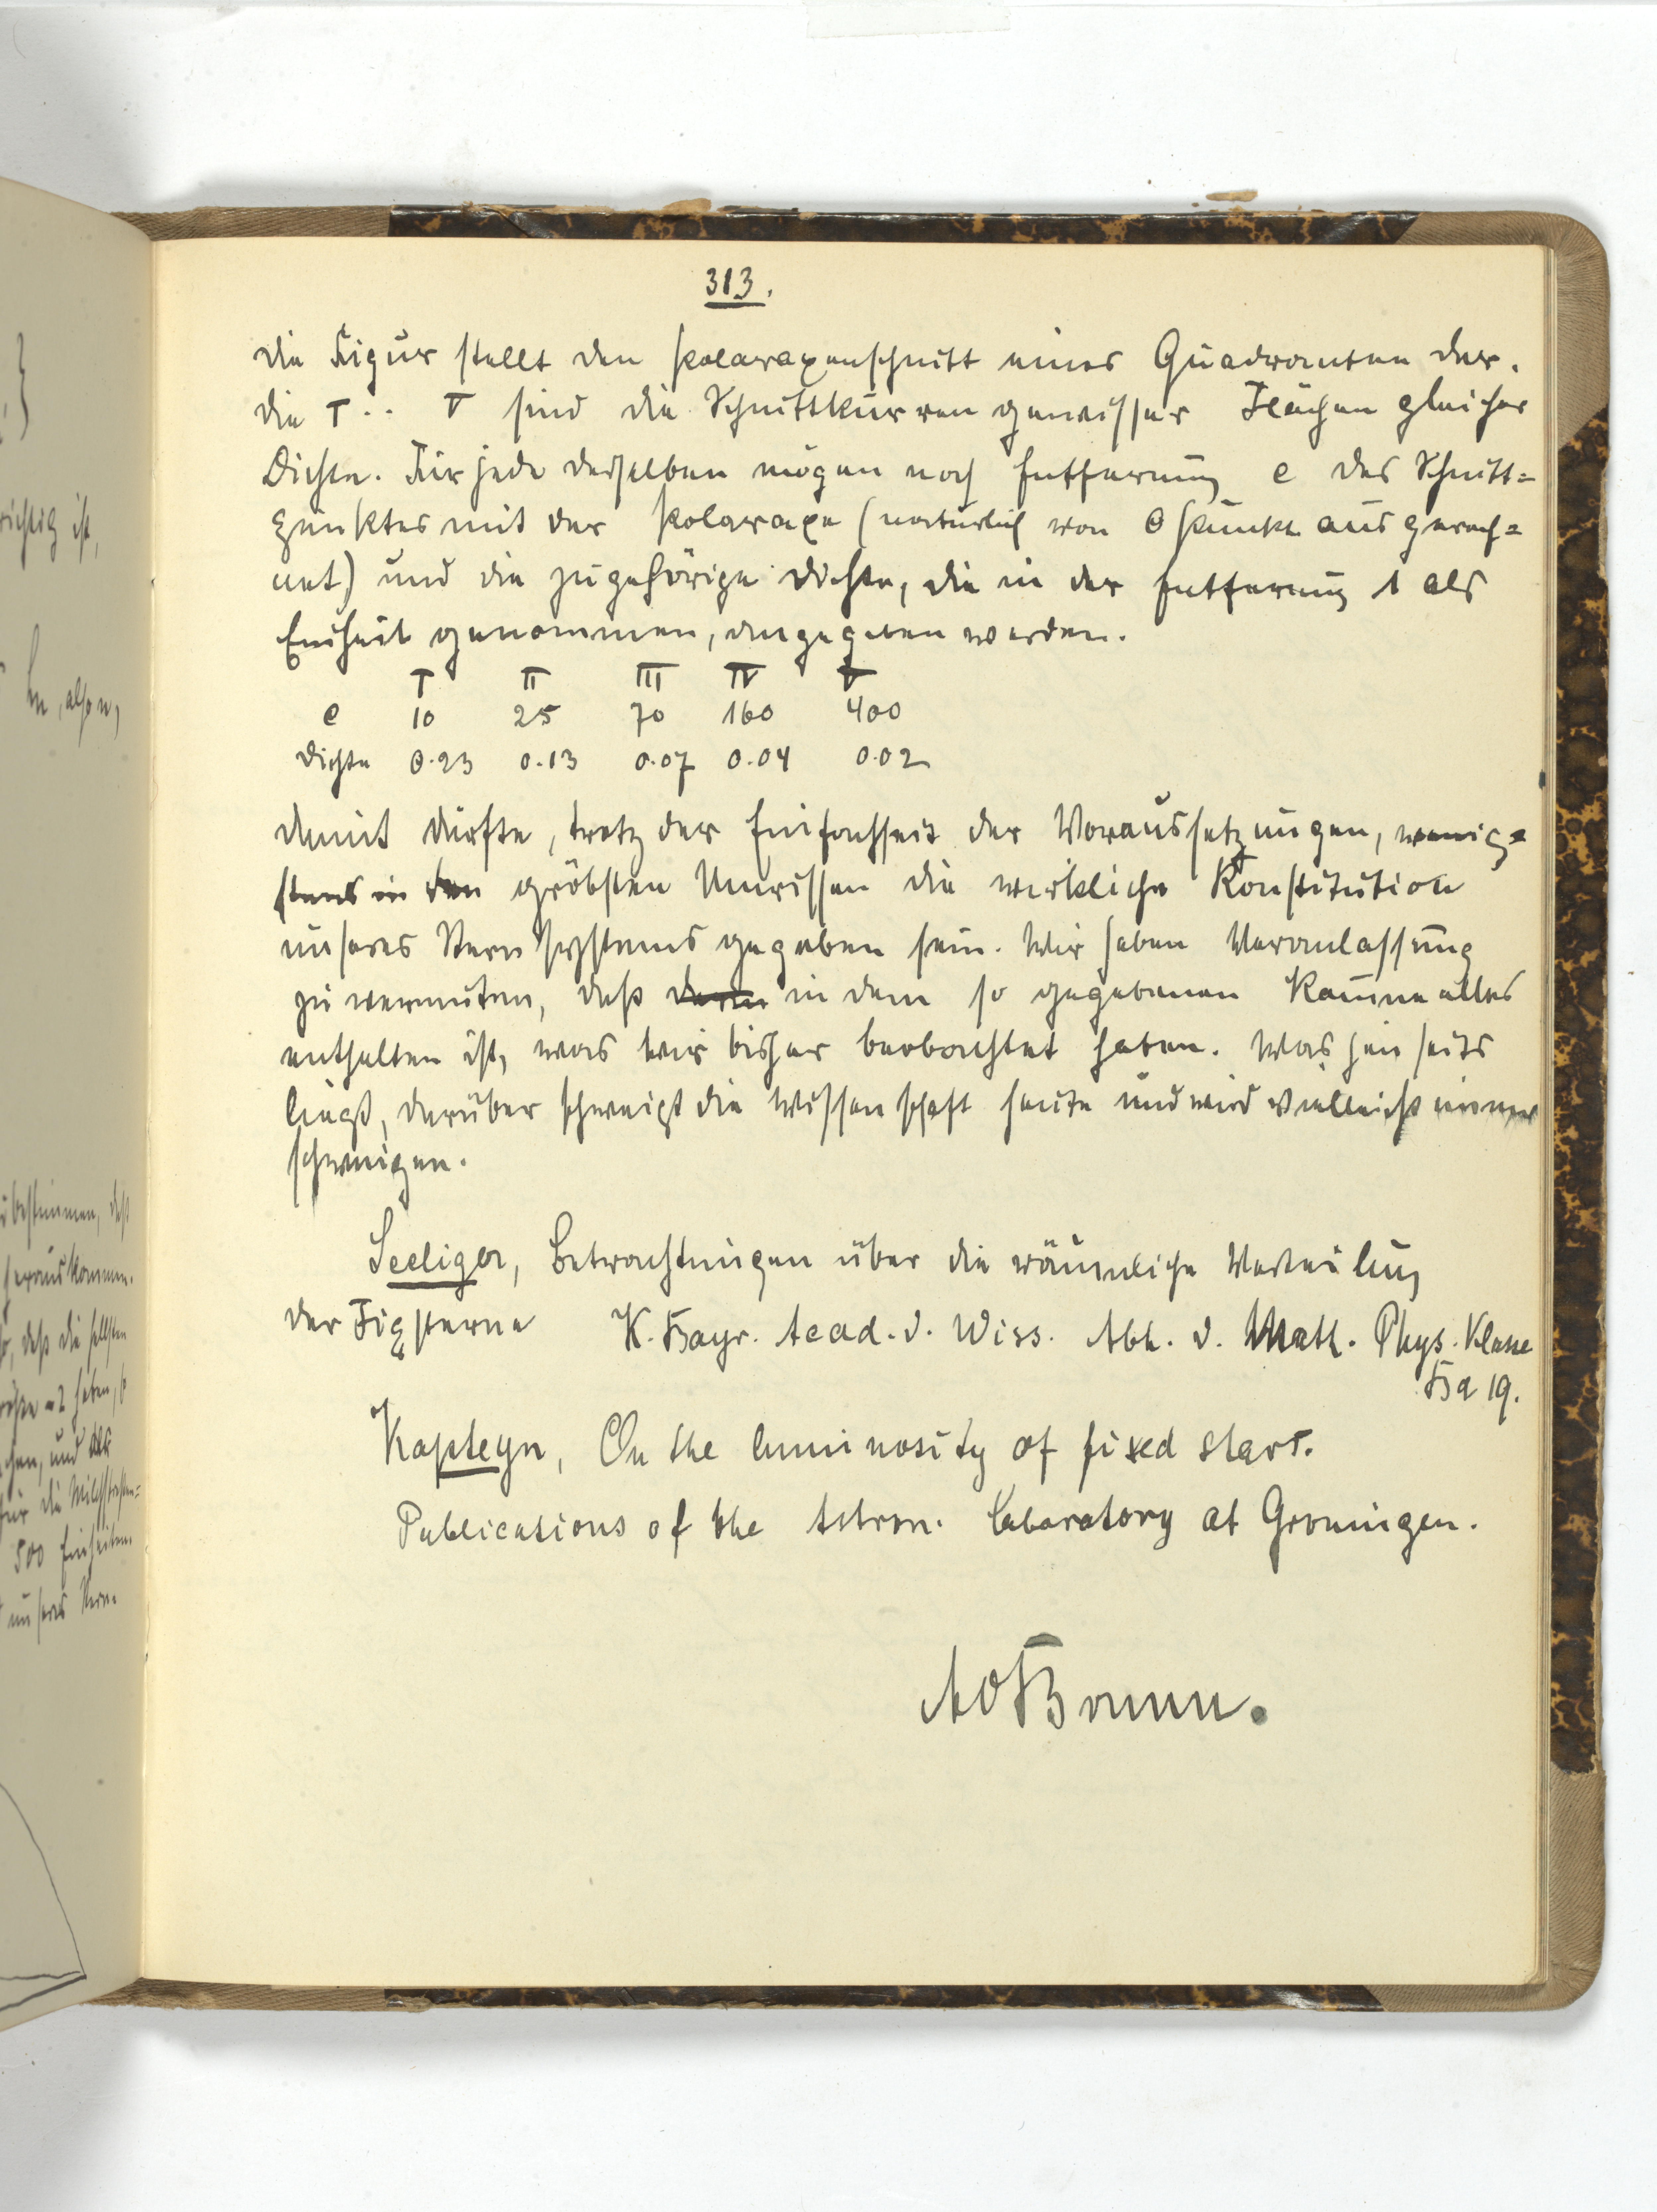 313.
Die Figur stellt den Polaraxenschnitt eines Quadranten dar.
Die I .. V sind die Schnittkurven gewisser Flächen gleicher
Dichte. Für jede derselben mögen noch Entfernung e des Schnitt=
punktes mit der Polaraxe (natürlich von O punkt aus gerech=
net) und die zugehörige Dichte, die in der Entfernung 1 als
Einheit genommen, angegeben werden.
I II III IV V
e 10 25 70 160 400
Dichte 0.23 0.13 0.07 0.04 0.02
Damit dürfte, trotz der Einfachheit der Voraussetzungen, wenig=
stens in den gröbsten Umrissen die wirkliche Konstitution
unseres Sternsystems gegeben sein. Wir haben Veranlassung
zu vermuten, daß in dem so gegebenen Raume alles
enthalten ist, was wir bisher beobachtet haben. Was jenseits
liegt, darüber schweigt die Wissenschaft heute und wird vielleicht immer
schweigen.
Seeliger, Betrachtungen über die räumliche Verteilung
der Fixsterne K. Bayr. Acad. d. Wiss. Abh. d. Math. Phys. Klasse
Bd 19.
Kapteyn, On the luminosity of fixed stars.
Publications of the Astron. Laboratory at Groningen.
richtig ist,
zu bestimmen, daß
herauskommen.
daß die hellsten
haben, so
und
für die Milchstraßen=
500 Einheiten
unseres Stern-